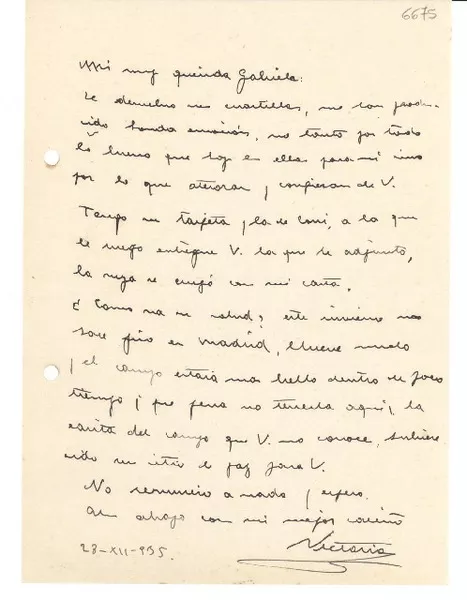 6675
Mi muy querida Gabriela:
Le devuelvo sus cuartillas, me han produ-
cido honda emoción, no tanto por todo
lo bueno que hay en ellas para mi sino
por lo que atesoran y confiesan de V.
Tengo su tarjeta y la de Coni, a la que
le ruego entregue V. la que le adjunto,
la suya se cruzó con mi carta.
¿Como va su salud? este invierno no
hace frio en Madrid, llueve mucho
y el campo estará muy bello dentro de poco
tiempo ¡que pena no tenerla aqui, la
casita del campo que V. no conoce, hubiera
sido un sitio de paz para V.
No renuncio a nada y espero.
Un abrazo con mi mejor cariño
Victoria
23-XII-935.